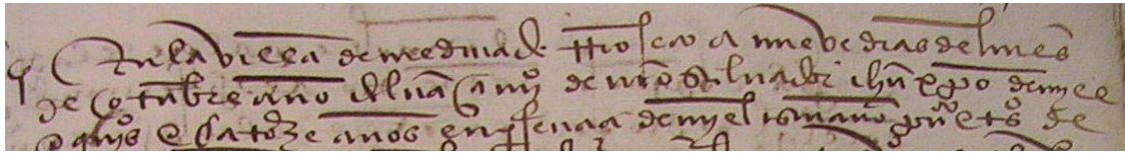 En la villa de medina de Rrioseco a nueve dias del mes
de otubre año del naçimyº de nro salvador ihu xpo de myll
e quiºs e catorze años en psençia de my el escrivano e tºs de